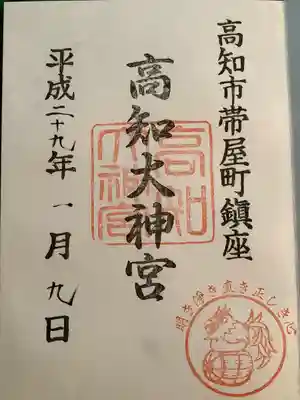 高知市帯屋町鎮座
高知大神宮
平成二十九年一月九日
高知
大神宮
明き浄き直き正しき心